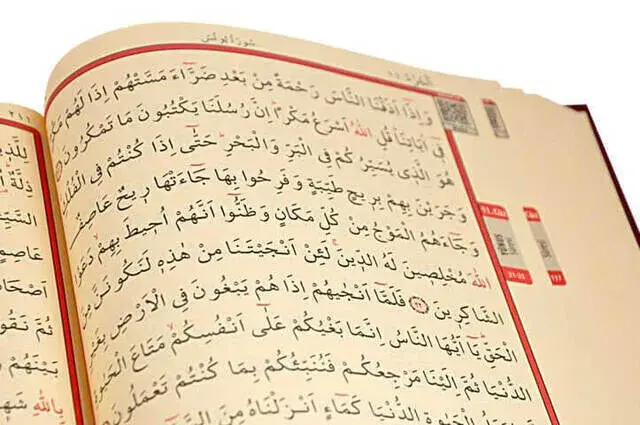 سورة يونس
وَاِذَٓا اَذَقْنَا النَّاسَ رَحْمَةً مِنْ بَعْدِ ضَرَّٓاءَ مَسَّتْهُمْ اِذَا لَهُمْ
ف۪ٓي اٰيَاتِنَا قُلِ اللّٰهُ اَسْرَعُ مَكْرًا اِنَّ رُسُلَنَا يَكْتُبُونَ مَا تَمْكُرُونَ
هُوَ الَّذ۪ي يُسَيِّرُكُمْ فِي الْبَرِّ وَالْبَحْرِ حَتّٰٓى اِذَا كُنْتُمْ فِي الْفُلْكِ
وَجَرَيْنَ بِهِمْ بِر۪يحٍ طَيِّبَةٍ وَفَرِحُوا بِهَا جَٓاءَتْهَا ر۪يحٌ عَاصِفٌ
وَجَٓاءَهُمُ الْمَوْجُ مِنْ كُلِّ مَكَانٍ وَظَنُّٓوا اَنَّهُمْ اُح۪يطَ بِهِمْ دَعَوُا
اللّٰهَ مُخْلِص۪ينَ لَهُ الدّ۪ينَ لَئِنْ اَنْجَيْتَنَا مِنْ هٰذِه۪ لَنَكُونَنَّ مِنَ
الشَّاكِر۪ينَ ﴿٢٢﴾ فَلَمَّٓا اَنْجٰيهُمْ اِذَا هُمْ يَبْغُونَ فِي الْاَرْضِ بِغَيْرِ
الْحَقِّ يَٓا اَيُّهَا النَّاسُ اِنَّمَا بَغْيُكُمْ عَلٰٓى اَنْفُسِكُمْ مَتَاعَ الْحَيٰوةِ
الدُّنْيَا ثُمَّ اِلَيْنَا مَرْجِعُكُمْ فَنُنَبِّئُكُمْ بِمَا كُنْتُمْ تَعْمَلُونَ
الْحَيٰوةِ الدُّنْيَا كَمَٓاءٍ اَنْزَلْنَاهُ مِنَ
٢١١
لِلَّذ۪ينَ
ذِلَّةٌ
عَاصِمٍ
اَصْحَابُ
ثُمَّ نَقُولُ
بَيْنَهُمْ
بِاللّٰهِ